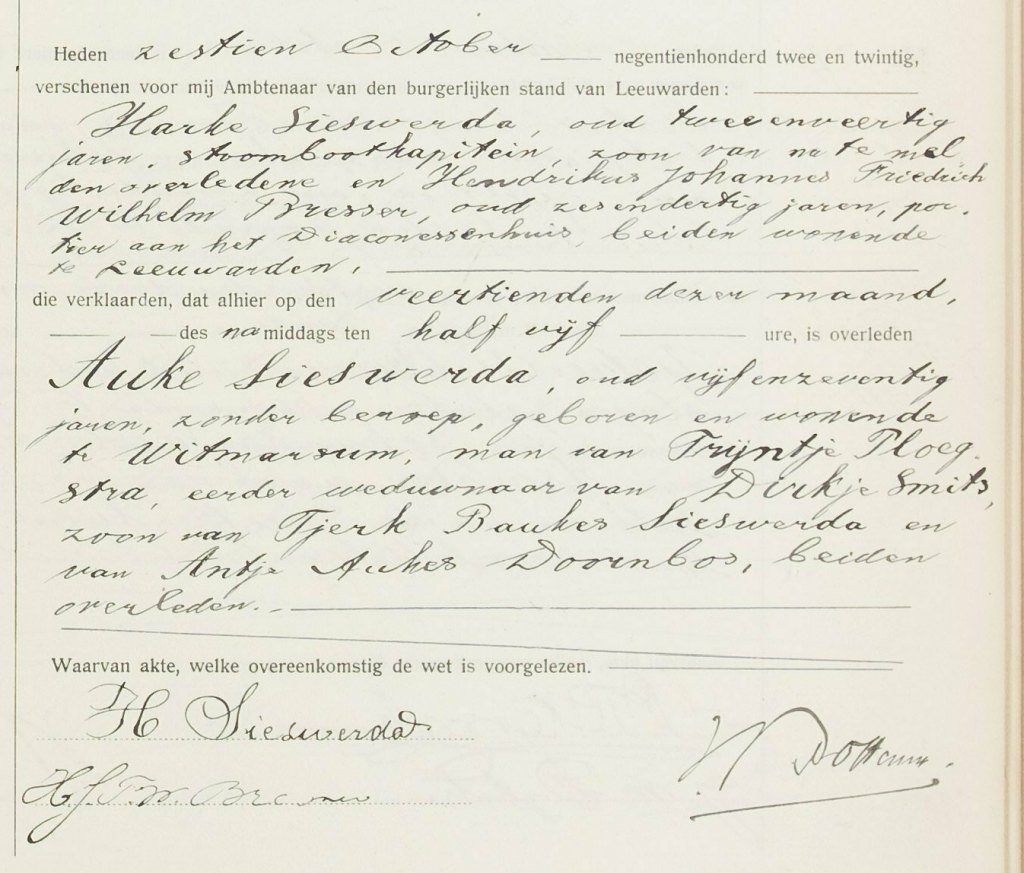 Heden zestien October negentienhonderd twee en twintig,
verschenen voor mij Ambtenaar van den burgerlijken stand van Leeuwarden:
Harke Sieswerda, oud tweeenveertig
jaren, stoombootkapitein, zoon van na te mel
den overledene en Hendrikus Johannes Friedrich
Wilhelm Bresser, oud zesendertig jaren, por-
tier aan het Diaconessenhuis, beiden wonende
te Leeuwarden,
die verklaarden, dat alhier op den veertienden dezer maand,
des namiddags ten half vijf ure, is overleden
Auke Sieswerda, oud vijfenzeventig
jaren, zonder beroep, geboren en wonende
te Witmarsum, man van Trijntje Ploeg-
stra, eerder weduwnaar van Dirkje Smits,
zoon van Tjerk Baukes Sieswerda en
van Antje Aukes Doornbos, beiden
overleden.
Waarvan akte, welke overeenkomstig de wet is voorgelezen.
H Sieswerda
H.J.F.W. Bresser